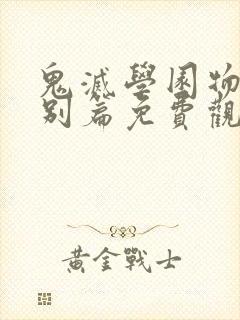 鬼滅學園物
別篇免費觀
黃金戰士